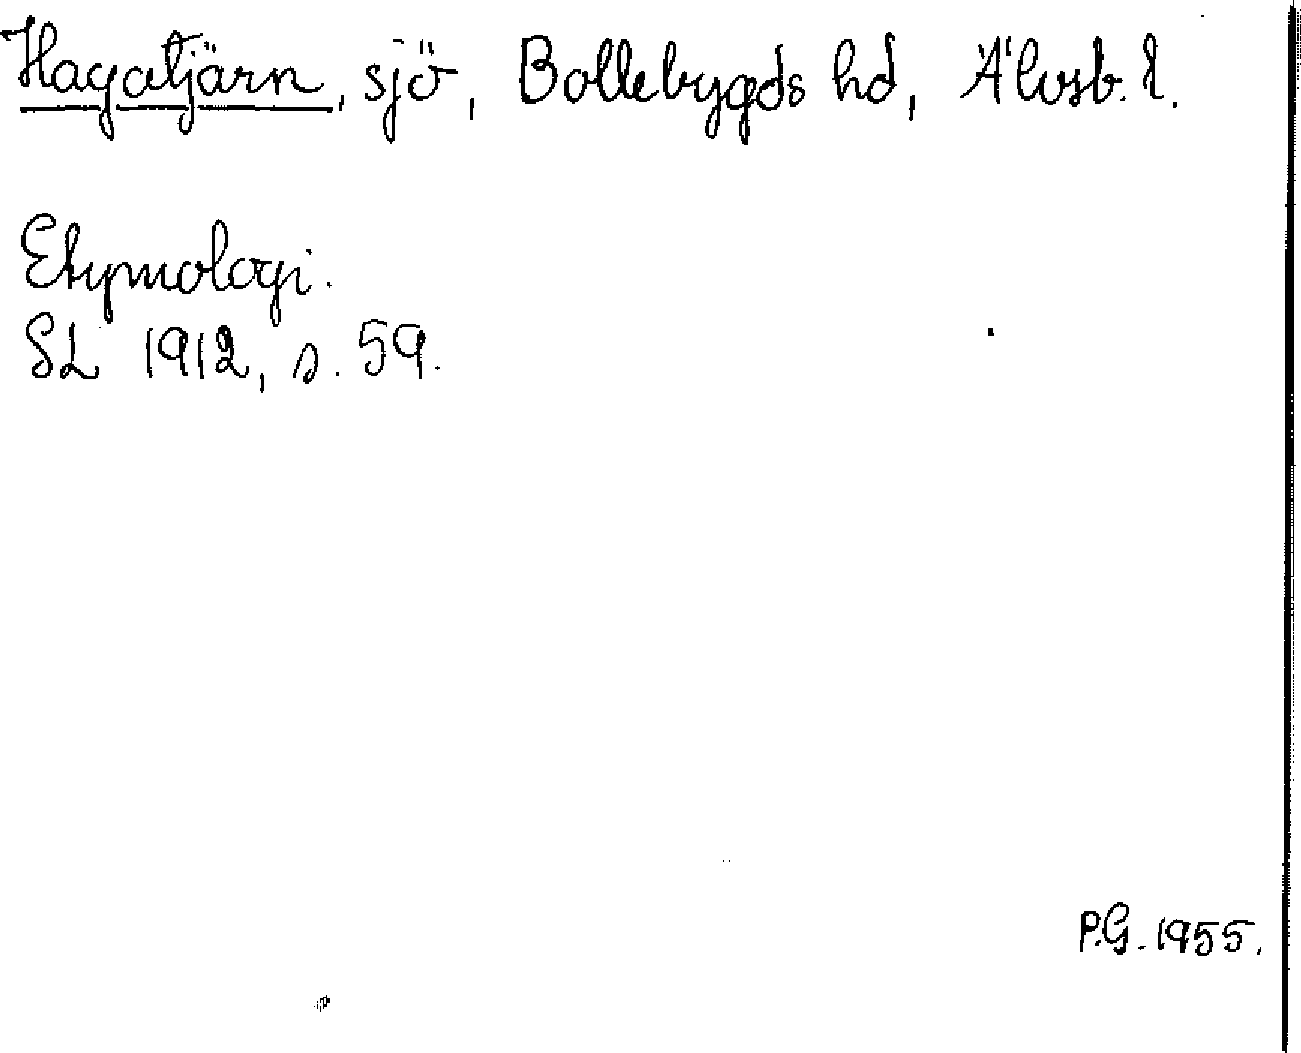 Hagatjärn, sjö, Bollebygds hd, Älvsb. l.
Etymologi.
SL 1912, s. 59.
P.G. 1955.